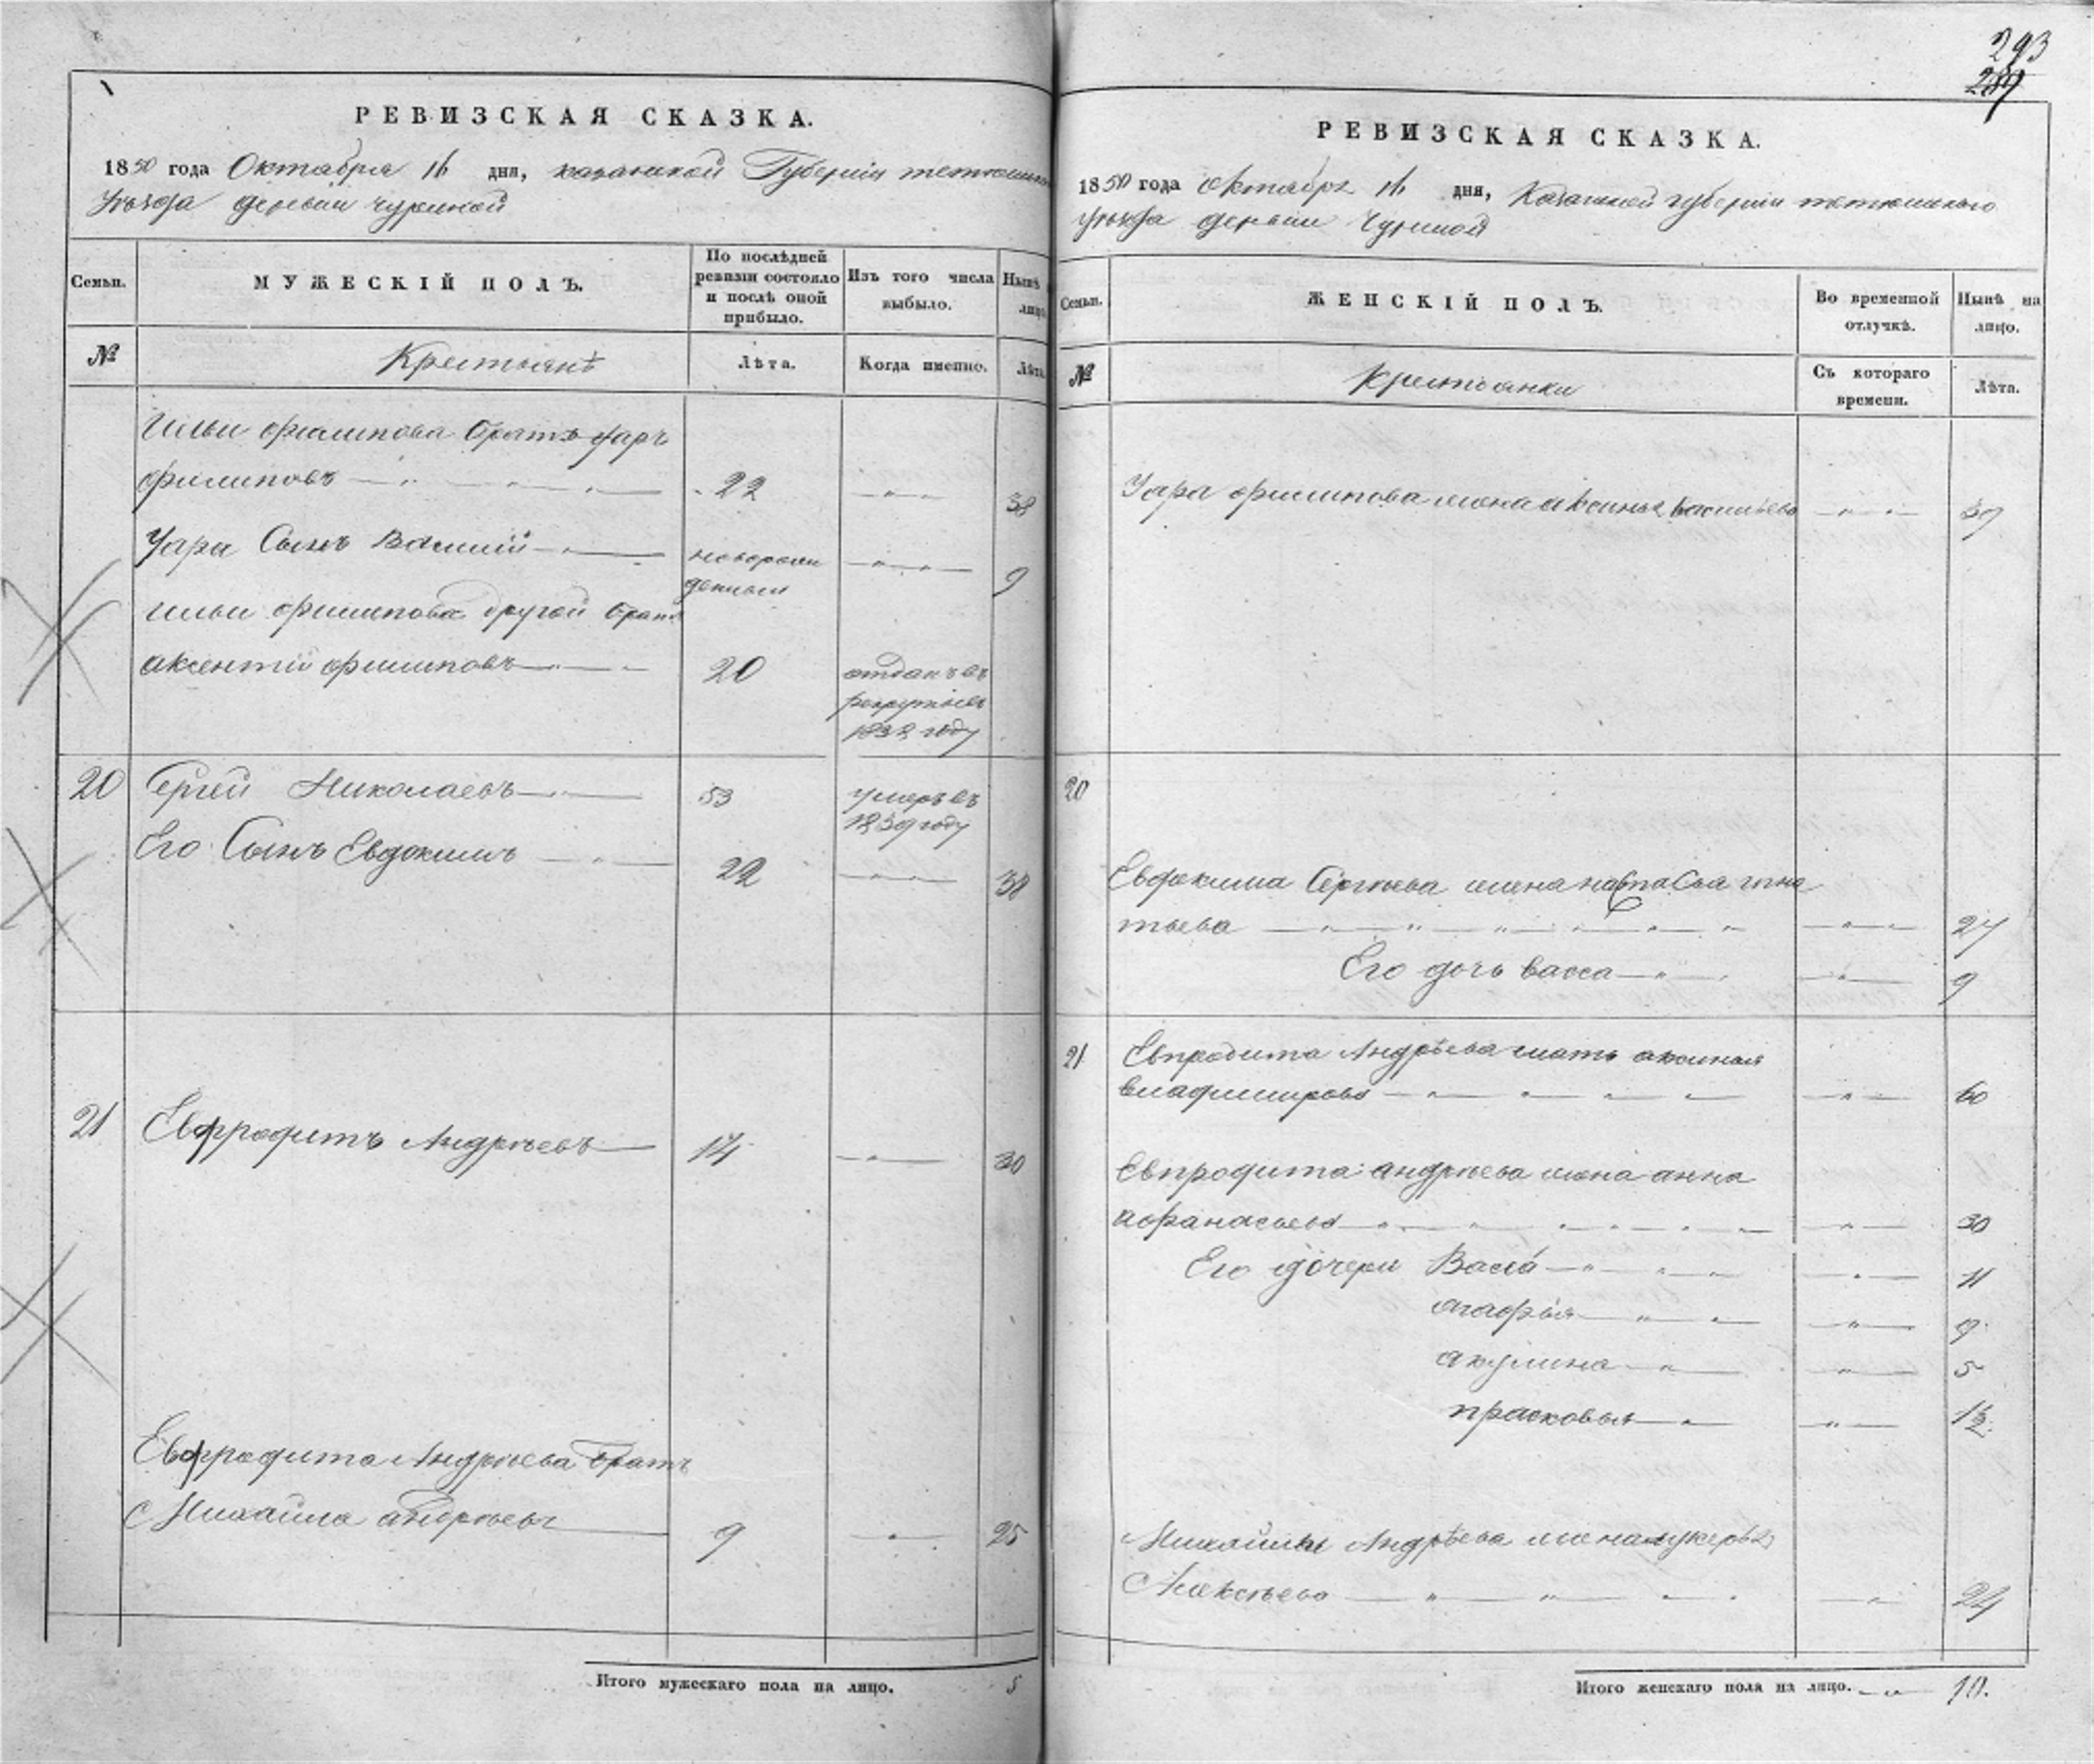 293
287
РЕВИЗСКАЯ СКАЗКА.
1850 года Октября 16 дня, казанской Губернiи тетюшскаго
Уѣзда деревни чуриной
Семьи.
МУЖЕСКІЙ ПОЛЪ.
По послѣдней ревизіи состояло и послѣ оной прибыло.
Изъ того числа выбыло.
Нынѣ лицо.
№
Крестьянѣ
Лѣта.
Когда именно.
Лѣта.
Ильи филипова братъ уаръ
филиповъ 22 38
Уара Сынъ Василий новорож
денный 9
Ильи филипова другой братъ
аксентiй филиповъ 20 отданъ въ
рекруты въ
1838 году
20 Сергей Николаевъ 53 умеръ въ
1839 году
Его Сынъ Евдокимъ 22 38
21 Евфродитъ Андрѣевъ 14 30
Евфродита Андрѣева братъ
Михайла андрѣевъ 9 25
Итого мужескаго пола на лицо. 5
РЕВИЗСКАЯ СКАЗКА.
1850 года Октября 16 дня, Казанской губернiи тетюшскаго
уѣзда деревни Чуриной
Семьи.
ЖЕНСКІЙ ПОЛЪ.
Во временной отлучкѣ.
Нынѣ на лицо.
№
Крестьянки
Съ котораго времени.
Лѣта.
Уара филипова жена аксинья васильева 39
20
Евдокима Сергѣева жена настасья игна
тьева 27
Его дочь васса 9
21 Евпродита Андрѣева мать аксинья
владимирова 60
Евпродита андрѣева жена анна
афанасьева 30
Его дочери Васса 11
агафья 9
акулина 5
прасковья 1½
Михайлы Андрѣева жена лукерья
Алексѣева 24
Итого женскаго пола на лицо. 10.